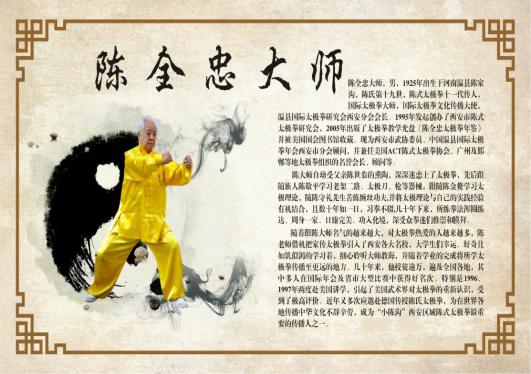 陈全忠大师
陈全忠大师，男，1925年出生于河南温县陈家
沟，陈氏第十九世，陈式太极拳十一代传人，
国际太极拳大师，国际太极拳文化传播大使，
温县国际太极拳研究会西安分会会长。1995年发起创办了西安市陈式
太极拳研究会。2005年出版了太极拳教学光盘《陈全忠太极拳年鉴》
并被美国国会图书馆收藏。现为西安市武协委员、中国温县国际太极
拳年会西安市分会顾问，并兼任美国ACT陈式太极拳协会、广州及邯
郸等地太极拳组织的名誉会长、顾问等。
陈大师自幼受父亲陈世春的熏陶，深深迷恋上了太极拳，先后跟
随族人陈敬平学习老架二路、太极刀、枪等器械，跟随陈金鳌学习太
极理论，随陈守礼先生苦练缠丝功夫，并将太极理论与自己的实践经验
有机结合，且数十年如一日，习拳不辍，几十年下来，所练拳法浑圆练
达、周身一家、日臻完美、功入化境，深受众拳迷们推崇和膜拜。
随着跟陈大师名气的越来越大，对太极拳热爱的人越来越多，陈
老师借机把家传太极拳引入了西安各大名校，大学生们幸运、好奇且
如饥似渴的学习着，细心聆听大师教海，并随着学业的完成将所学太
极拳传播至更远的地方。几十年来，他授徒逾万，遍及全国各地，其
中多人在国际年会及省市大型比赛中获得好名次。特别是1996、
1997年两度赴美国讲学，引起了美国武术界对太极拳的重新认识，受
到了极高评价。近年又多次应邀赴德国传授陈氏太极拳，为在世界各
地传播中华文化不辞辛劳，成为“小陈沟”西安区域陈式太极拳最重
要的传播人之一。